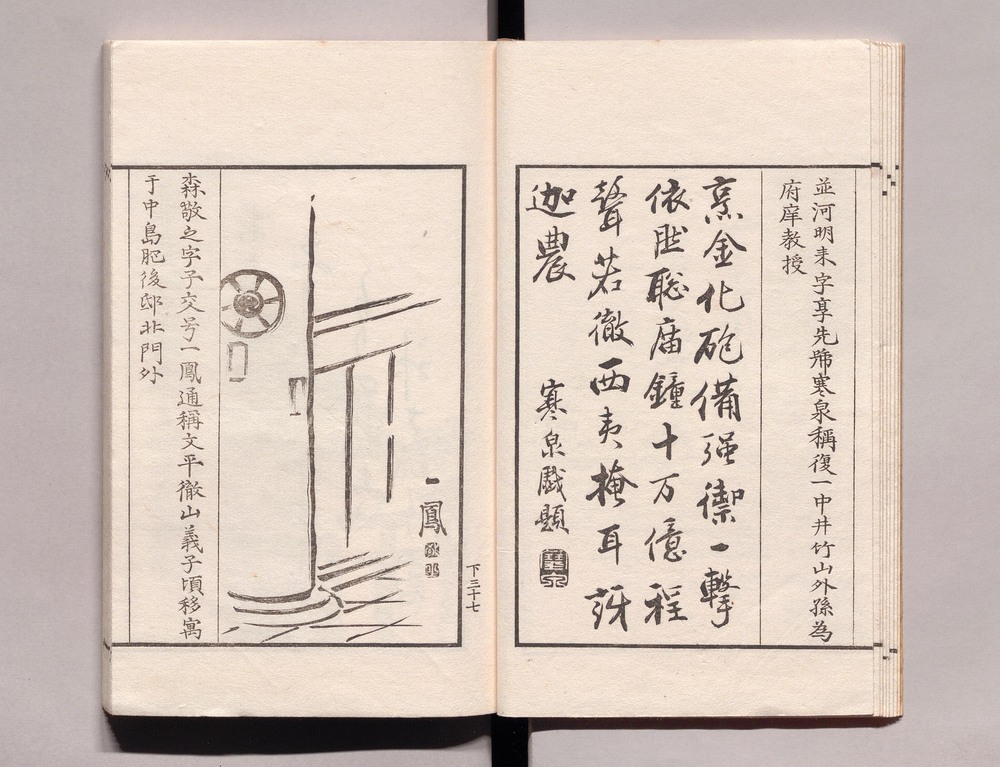 並河明来字享先號寒泉稱復一中井竹山外孫為
府庠教授
烹金化砲備强禦一擊
依然聡庙鐘十万億程
聲若徹西夷掩耳訝
迦農
寒泉戲題
下三十七
一鳳
森敬之字子交号一鳳通稱文平徹山義子頃移寓
于中島肥後邸北門外